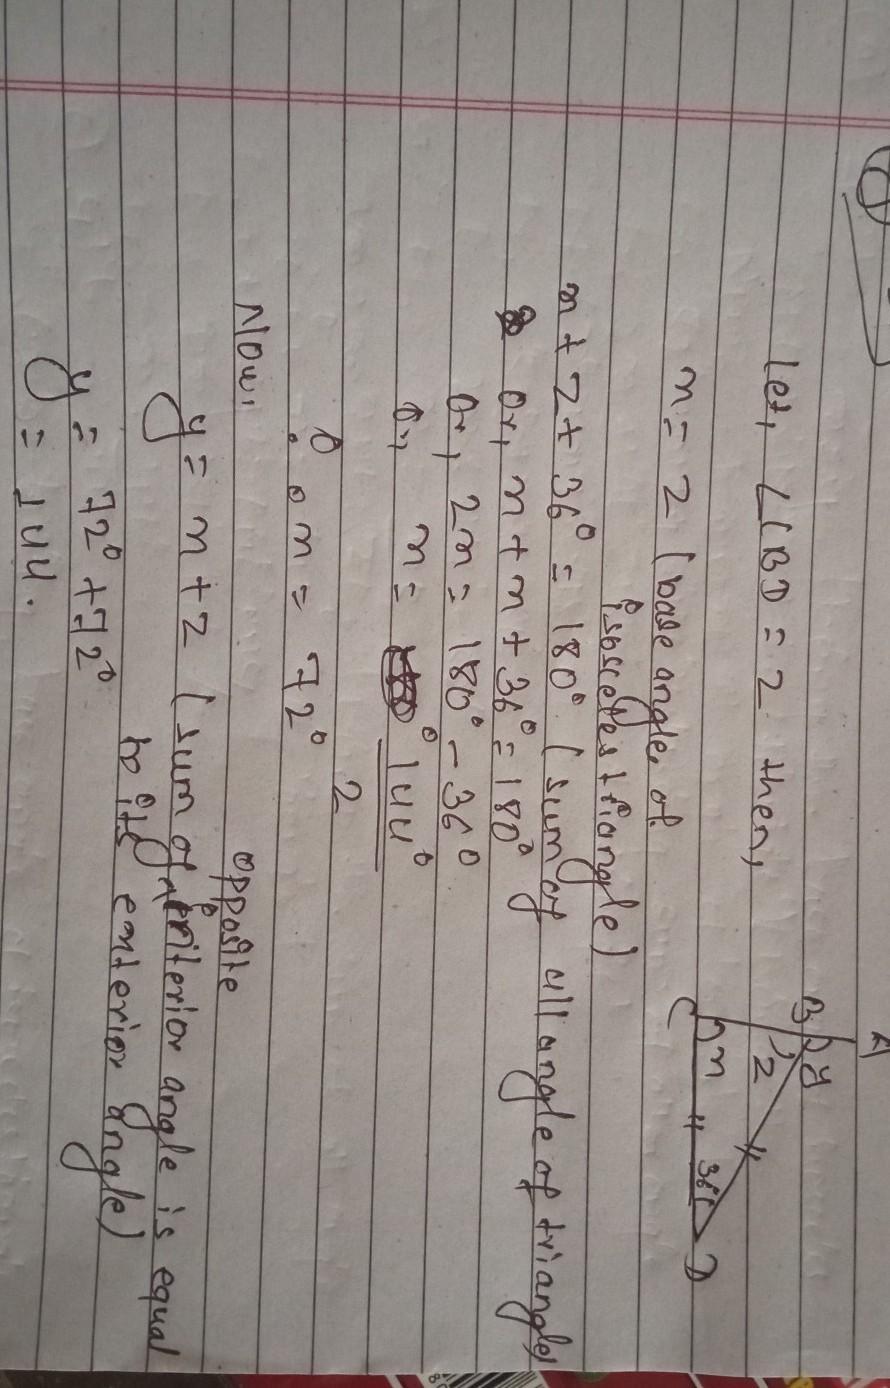 let, ∠CBD = z then,
m = z (base angle of
isosceles triangle)
m + z + 36° = 180° (sum of all angle of triangle)
or, m + m + 36° = 180°
or, 2m = 180° - 36°
or, m = 144°
2
∴ m = 72°
Now,
opposite
y = m + z (sum of interior angle is equal
to its exterior angle)
y = 72° + 72°
y = 144.
A
B
y
z
C
m
36°
D